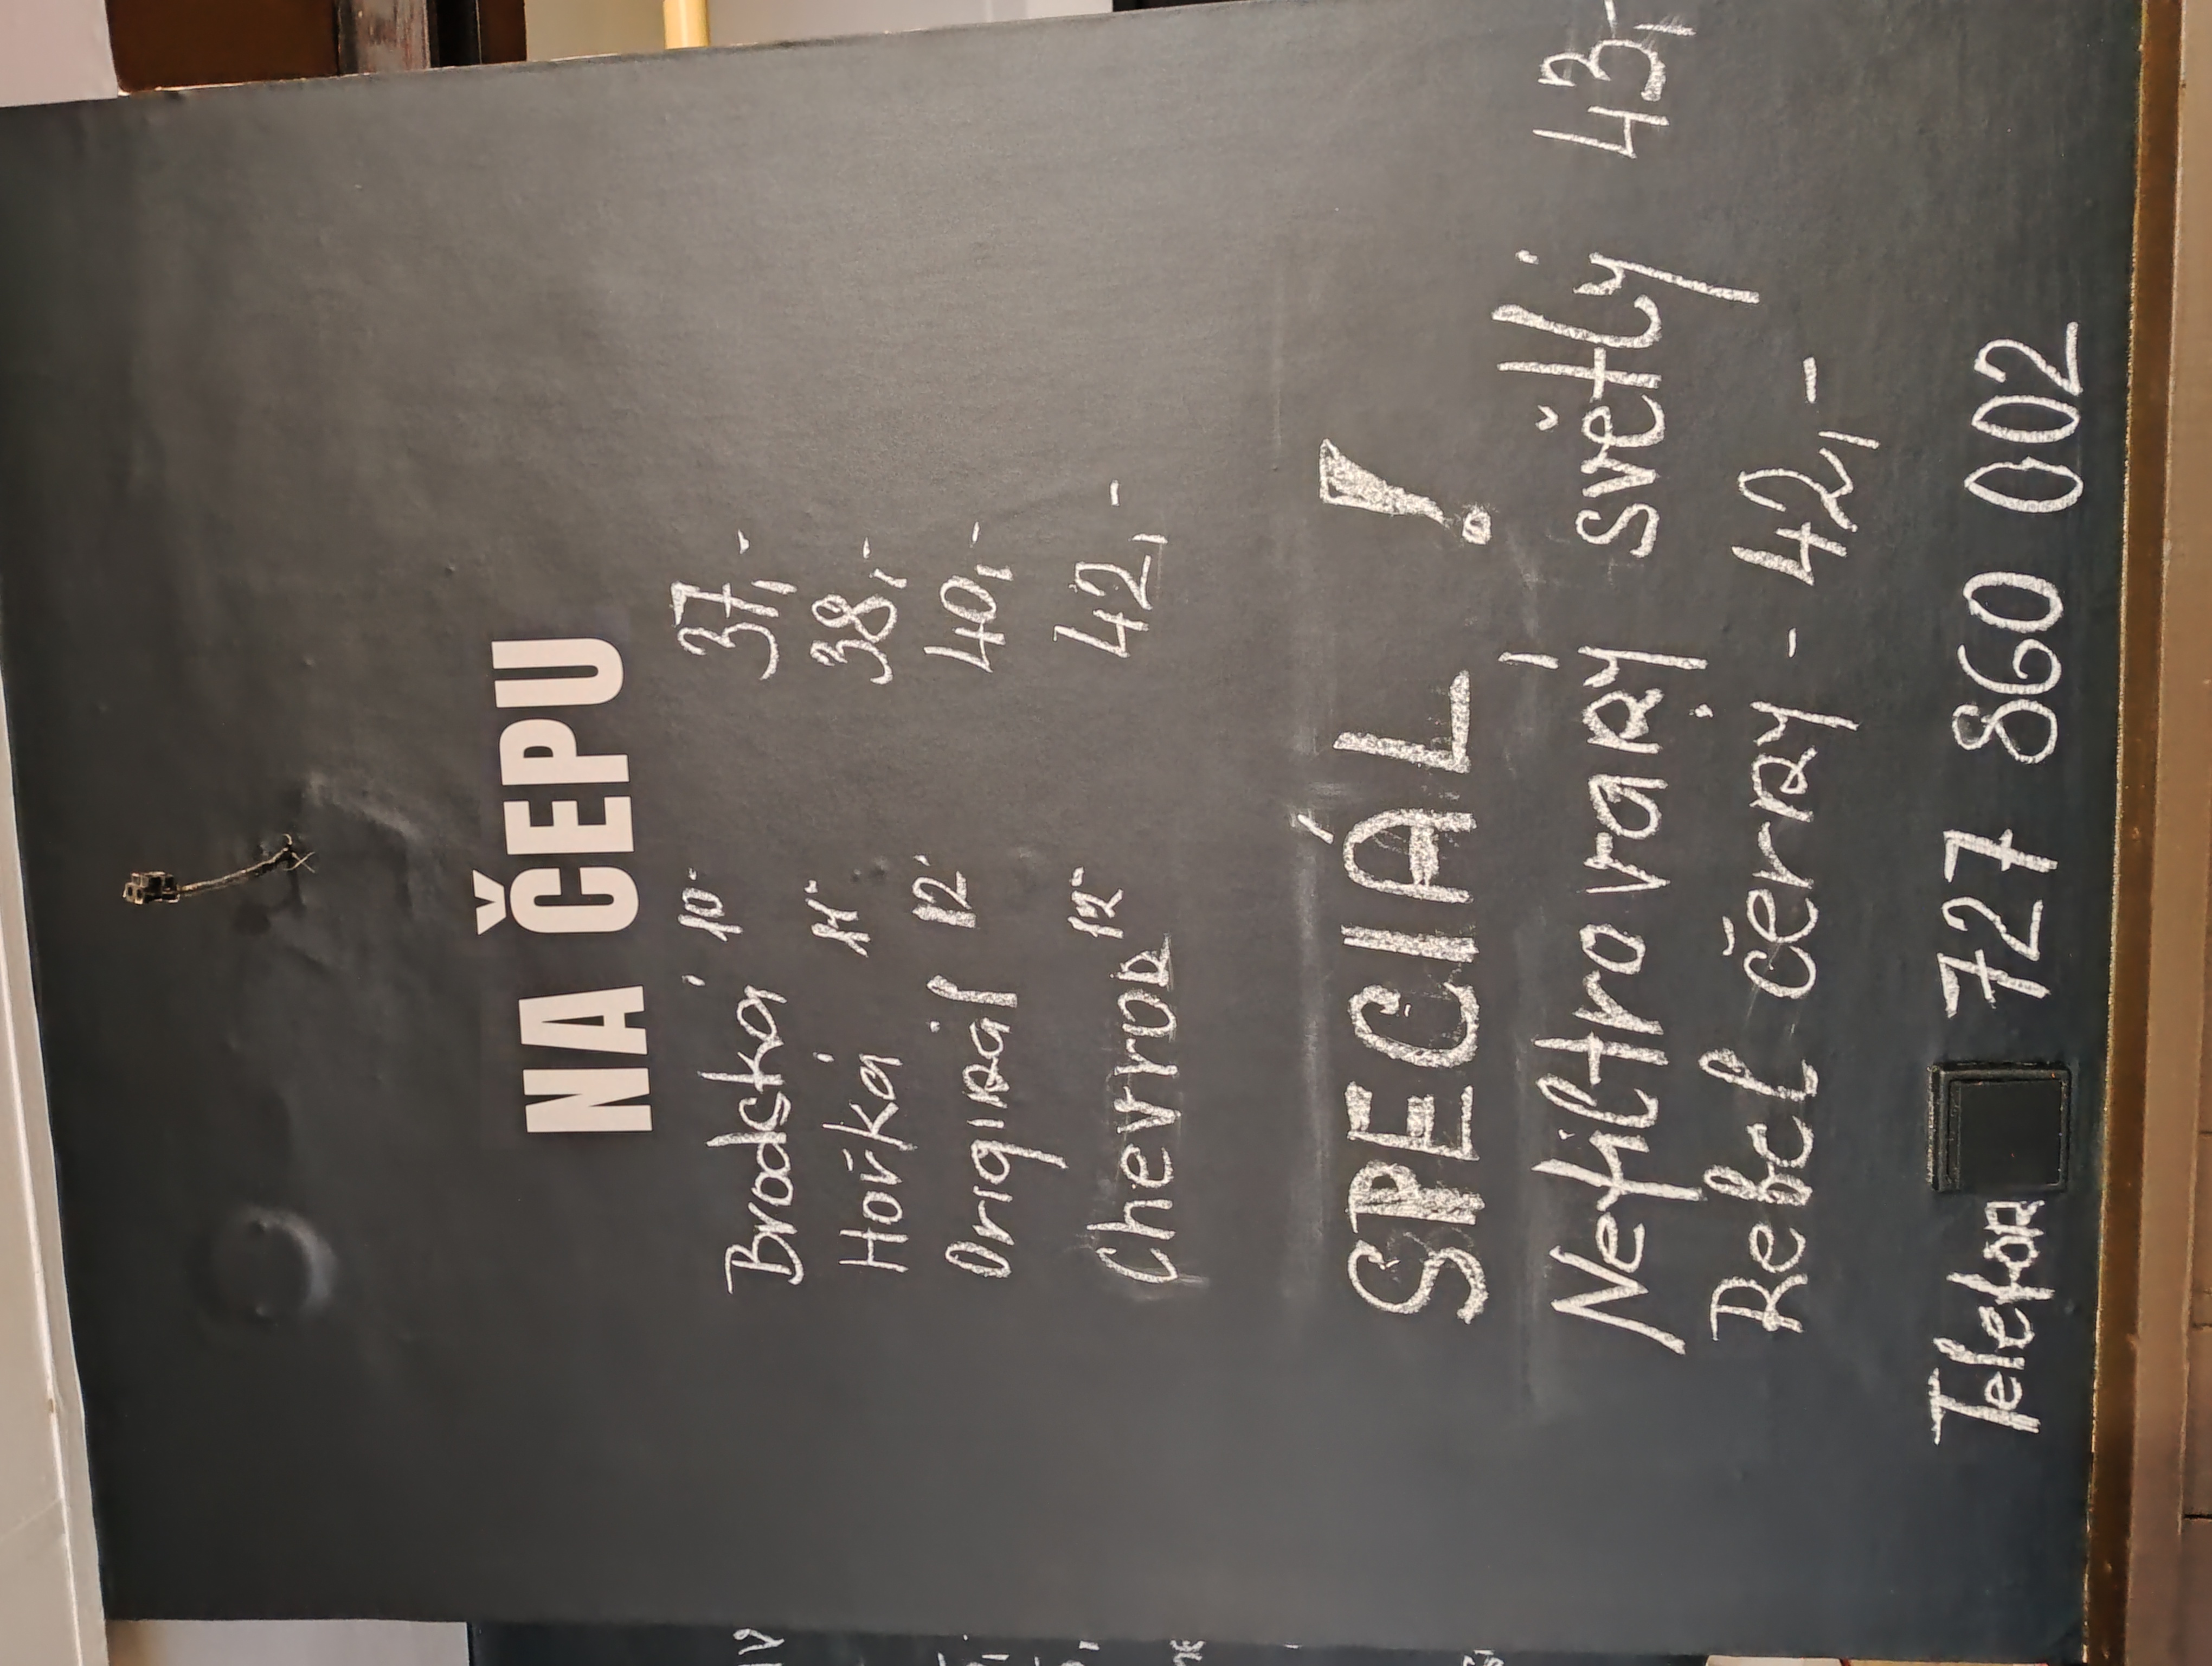 NA ČEPU
Brodská 10° 37,-
Hořká 11° 38,-
Originál 12° 40,-
Chevron 12° 42,-
SPECIÁL !
Nefiltrovaný světlý 43,-
Rebel černý - 42,-
Telefon 727 860 002